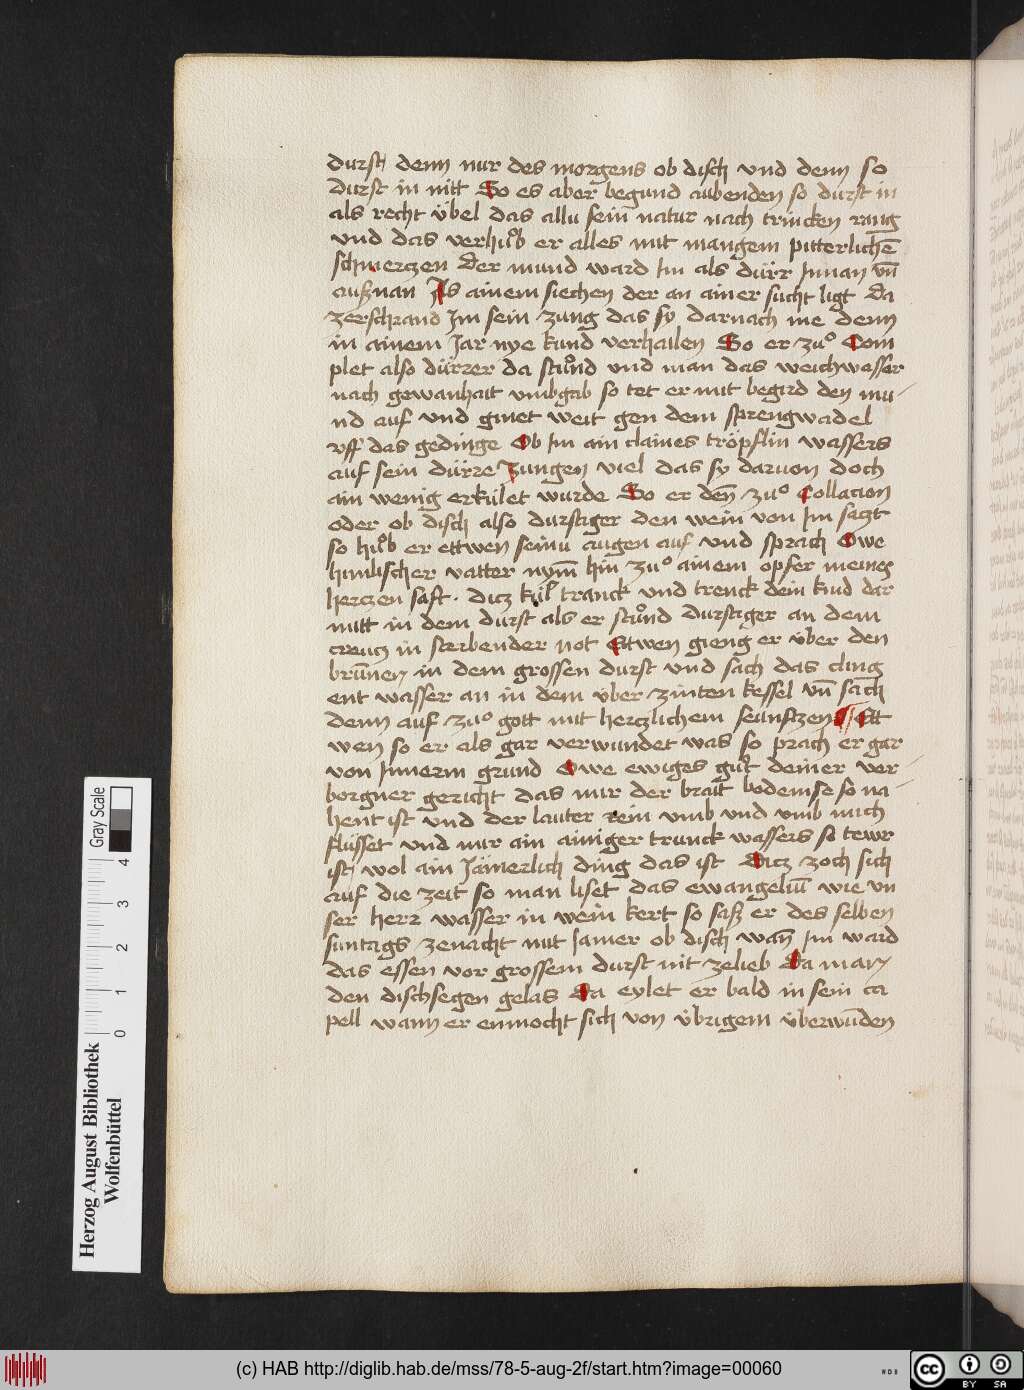 durst denn nur des morgens ob disch und denn so
durst in nitt So es aber begund aubenden so durst in
als recht übel das allu sein natur nach trincken rang
und das verhuͦb er alles mit mangem pitterlichē
schmerczen Der mund ward Im als dürr Innan vn̄
auſznan Als ainem siechen der an ainer sucht ligt Da
zerschrand Im sein zung das sy darnach nie denn
in ainem Jar nye kund verhailen So er zuͦ Com
plet also dürrer da stuͦnd und man das weichwasser
nach gewanhait umbgab so tet er mit begird den mu-
nd auf und ginet weit gen dem sprengwadel
uff das gedinge Ob Im ain claines tröpflin wassers
auf sein dürre Zungen viel das sy daruon doch
ain wenig erkület wurde So er den̄ zuͦ Collacion
oder ob disch also durstiger den wein von Im saczt
so huͦb er ettwen seinu augen auf und sprach Owe
himlischer vatter nym̄ hin zuͦ ainem opfer meines
herczen saft . dicz kül tranck und trenck dein kind dar
mitt in dem durst als er stuͦnd durstiger an dem
creucz in sterbender not Ettwen gieng er über den
brūnen in dem grossen durst und sach das cling
ent wasser an in dem über zinten kessel vn̄ sach
denn auf zuͦ gott mit herczlichem seunftzen Ett
wen so er als gar verwundet was so prach er gar
von Innerm grund Owe ewiges guͦt deiner ver-
borgner gericht das mir der brait bodemse so na-
hent ist und der lauter rein umb und umb mich
flüsset und mir ain ainiger trunck wassers so tewr
ist wol ain Jāmerlich ding das ist Dicz zoch sich
auf die zeit so man liset das ewangeliū wie un
ser herr wasser in wein kert so saſz er des selben
suntags zenacht mit Jamer ob disch wan̄ Im ward
das essen vor grossem durst nit zelieb Da man
den dischsegen gelas Da eylet er bald in sein ca
pell wann er enmocht sich von übrigem überwūden
Herzog August Bibliothek
Wolfenbüttel
0 1 2 3 4
Gray Scale
(c) HAB http://diglib.hab.de/mss/78-5-aug-2f/start.htm?image=00060
WDB
CC BY SA